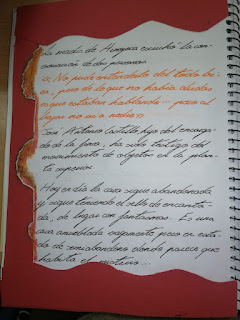 La madre de Almagra escuchó la con-
versación de dos personas
"No pude entenderlo del todo bie-
n, pero de lo que no había dudas
es que estaban hablando - pero al
llegar no vi a nadie"
José Antonio Castillo, hijo del encarga-
do de la finca, ha sido testigo del
movimiento de objetos en la plan-
ta superior.
Hoy en día la casa sigue abandonada
y sigue teniendo el sello de encanta-
da, de lugar con fantasmas. Es una
casa amueblada vagamente pero en esta-
do de semiabandono donde parece que
habita el misterio...